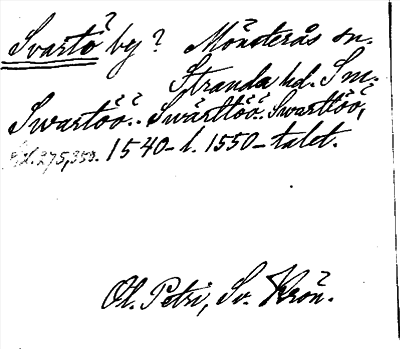 Svartö? by? Mönsterås sn.
Stranda hd. Sm.
Swartöö. Swärttöö. Swarttöö,
sid. 275, 350. 1540- l. 1550-talet.
Ol. Petri, Sv. Krön.